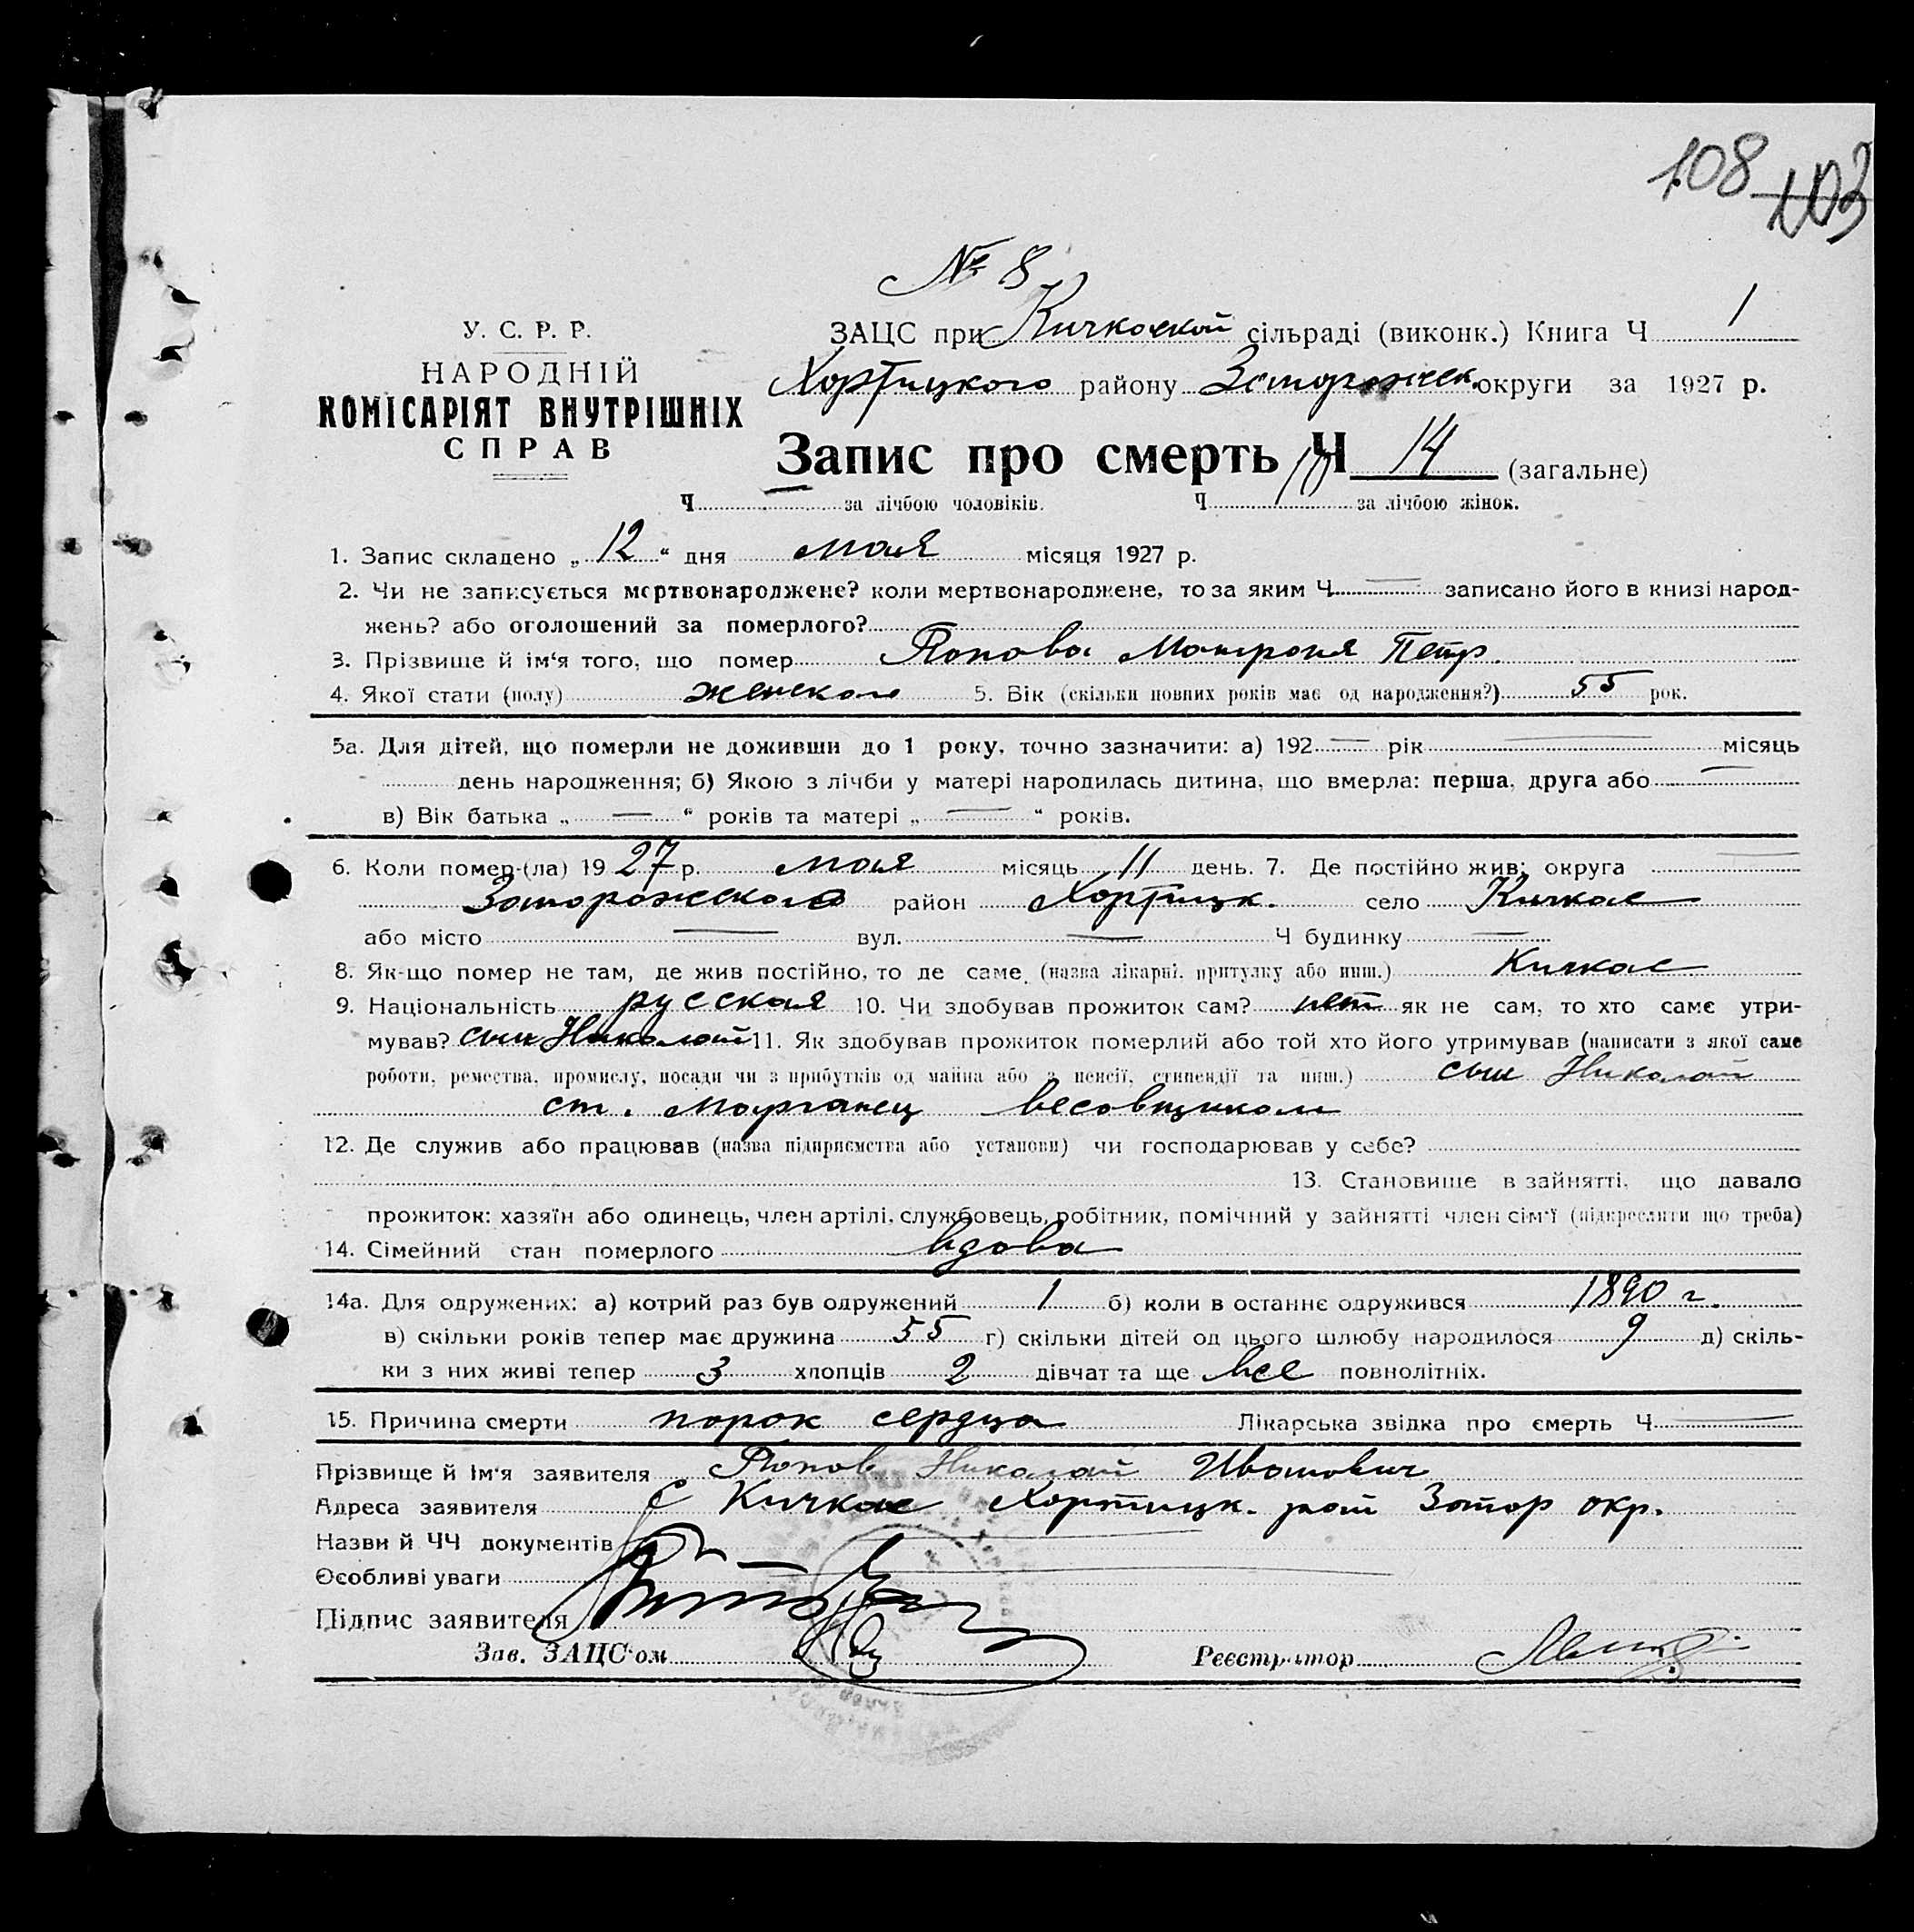 108 103
№ 8
У. С. Р. Р.
НАРОДНІЙ
КОМІСАРІЯТ ВНУТРІШНІХ
СПРАВ
ЗАЦС при Кичкаской сільраді (виконк.) Книга Ч 1
Хортицкого району Запорожск. округи за 1927 р.
Запис про смерть Ч 14 (загальне)
Ч — за лічбою чоловіків. Ч 10 за лічбою жінок.
1. Запис складено „ 12 “ дня мая місяця 1927 р.
2. Чи не записується мертвонароджене? коли мертвонароджене, то за яким Ч — записано його в книзі народ-
жень? або оголошений за померлого?
3. Прізвище й ім‘я того, що помер Попова Матрона Петр.
4. Якої стати (полу) женского 5. Вік (скільки повних років має од народження?) 55 рок.
5а. Для дітей, що померли не доживши до 1 року, точно зазначити: а) 192 — рік — місяць
день народження; б) Якою з лічби у матері народилась дитина, що вмерла: перша, друга або —
в) Вік батька „ — “ років та матері „ — “ років.
6. Коли помер-(ла) 1927 р. мая місяць 11 день. 7. Де постійно жив: округа —
Запорожского район Хортицк. село Кичкас
або місто — вул. — Ч будинку —
8. Як-що помер не там, де жив постійно, то де саме (назва лікарні, притулку або инш.) Кичкас
9. Національність русская 10. Чи здобував прожиток сам? нет як не сам, то хто саме утри-
мував? сын Николай 11. Як здобував прожиток померлий або той хто його утримував (написати з якої саме
роботи, ремества, промислу, посади чи з прибутків од майна або з пенсії, стипендії та инш.) сын Николай
ст. Марганец весовщиком
12. Де служив або працював (назва підприємства або установи) чи господарював у себе?
13. Становище в зайнятті, що давало
прожиток: хазяїн або одинець, член артілі, службовець, робітник, помічний у зайнятті член сім‘ї (підкреслити що треба)
14. Сімейний стан померлого вдова
14а. Для одружених: а) котрий раз був одружений 1 б) коли в останнє одружився 1890 г.
в) скільки років тепер має дружина 55 г) скільки дітей од цього шлюбу народилося 9 д) скіль-
ки з них живі тепер 3 хлопців 2 дівчат та ще все повнолітніх.
15. Причина смерти порок сердца Лікарська звідка про смерть Ч —
Прізвище й ім‘я заявителя Попов Николай Иванович
Адреса заявителя С Кичкас Хортицк. рай Запор окр.
Назви й ЧЧ документів
Особливі уваги
Підпис заявителя
Зав. ЗАЦС‘ом
Реєстратор